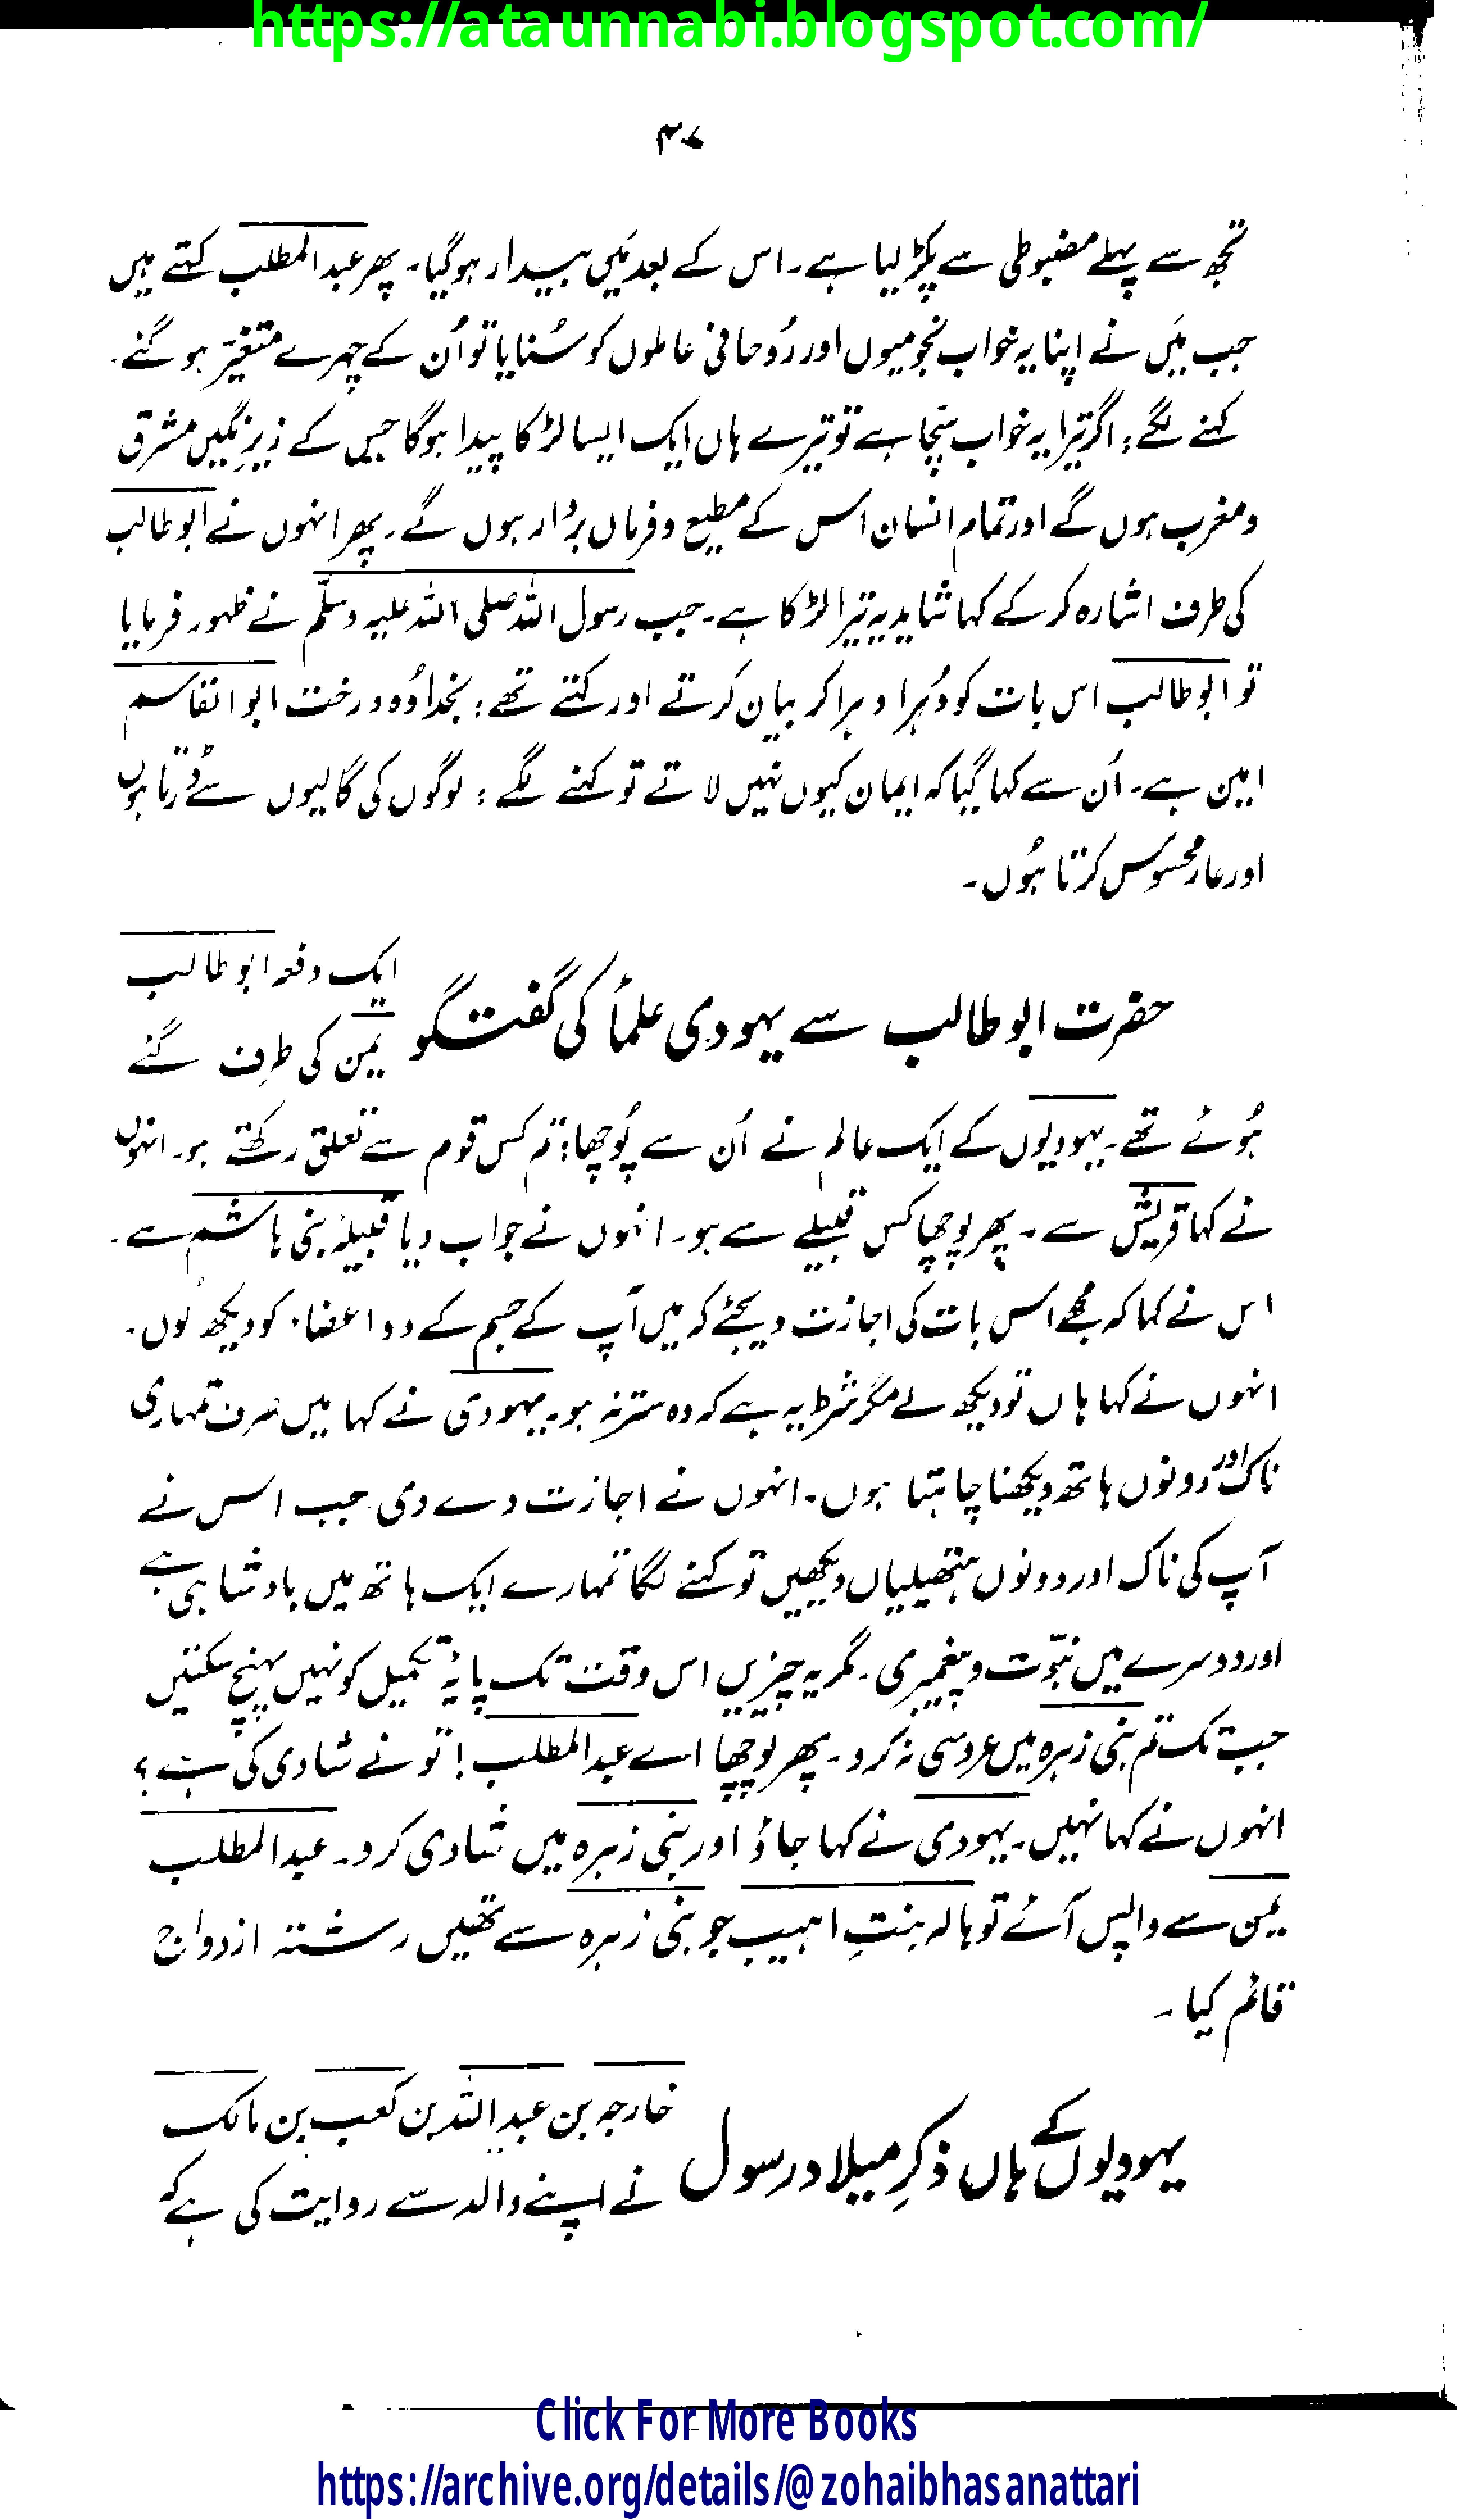 https://ataunnabi.blogspot.com/
۳۷
تجھ سے پہلے مضبوطی سے پکڑ لیا ہے۔ اس کے بعد مَیں بیدار ہوگیا۔ پھر عبدالمطلب کہتے ہیں
جب مَیں نے اپنا یہ خواب نجومیوں اور رُوحانی عاملوں کو سُنایا تو اُن کے چہرے متغیّر ہو گئے۔
کہنے لگے: اگر تیرا یہ خواب سچا ہے تو تیرے ہاں ایک ایسا لڑکا پیدا ہوگا جس کے زیرِ نگیں مشرق
و مغرب ہوں گے اور تمام انسان اس کے مطیع و فرماں بردار ہوں گے۔ پھر انہوں نے ابوطالب
کی طرف اشارہ کر کے کہا شاید یہ تیرا لڑکا ہے۔ جب رسول اللہ صلی اللہ علیہ وسلّم نے ظہور فرمایا
تو ابوطالب اس بات کو دُہرا دہرا کر بیان کرتے اور کہتے تھے: بخدا وُہ درخت ابوالقاسم
امین ہے۔ اُن سے کہا گیا کہ ایمان کیوں نہیں لاتے تو کہنے لگے: لوگوں کی گالیوں سے ڈرتا ہوں
اور عار محسوس کرتا ہُوں۔
حضرت ابوطالب سے یہودی علمأ کی گفتگو
ایک دفعہ ابوطالب
یمن کی طرف گئے
ہُوئے تھے۔ یہودیوں کے ایک عالم نے اُن سے پُوچھا: تم کس قوم سے تعلق رکھتے ہو۔ انہوں
نے کہا قریش سے۔ پھر پوچھا کس قبیلے سے ہو۔ انہوں نے جواب دیا قبیلۂ بنی ہاشم سے۔
اس نے کہا کہ مجھے اس بات کی اجازت دیجئے کہ میں آپ کے جسم کے دو اعضاء کو دیکھ لُوں۔
انہوں نے کہا ہاں تو دیکھ لے مگر شرط یہ ہے کہ وہ ستر نہ ہو۔ یہودی نے کہا میں صرف تمہاری
ناک اور دونوں ہاتھ دیکھنا چاہتا ہوں۔ انہوں نے اجازت دے دی۔ جب اس نے
آپ کی ناک اور دونوں ہتھیلیاں دیکھیں تو کہنے لگا تمہارے ایک ہاتھ میں بادشاہی ہے
اور دوسرے میں نبوّت و پیغمبری۔ مگر یہ چیزیں اس وقت تک پایۂ تکمیل کو نہیں پہنچ سکتیں
جب تک تم بنی زہرہ میں عروسی نہ کرو۔ پھر پوچھا اے عبدالمطلب! تو نے شادی کی ہے؟
انہوں نے کہا نہیں۔ یہودی نے کہا جاؤ اور بنی زہرہ میں شادی کرو۔ عبدالمطلب
یمن سے واپس آئے تو ہالہ بنتِ اہیب جو بنی زہرہ سے تھیں رشتہ ازدواج
قائم کیا۔
یہودیوں کے ہاں ذکرِ میلاد رسول
خارجہ بن عبداللہ بن کعب بن مالک
نے اپنے والد سے روایت کی ہے کہ
Click For More Books
https://archive.org/details/@zohaibhasanattari